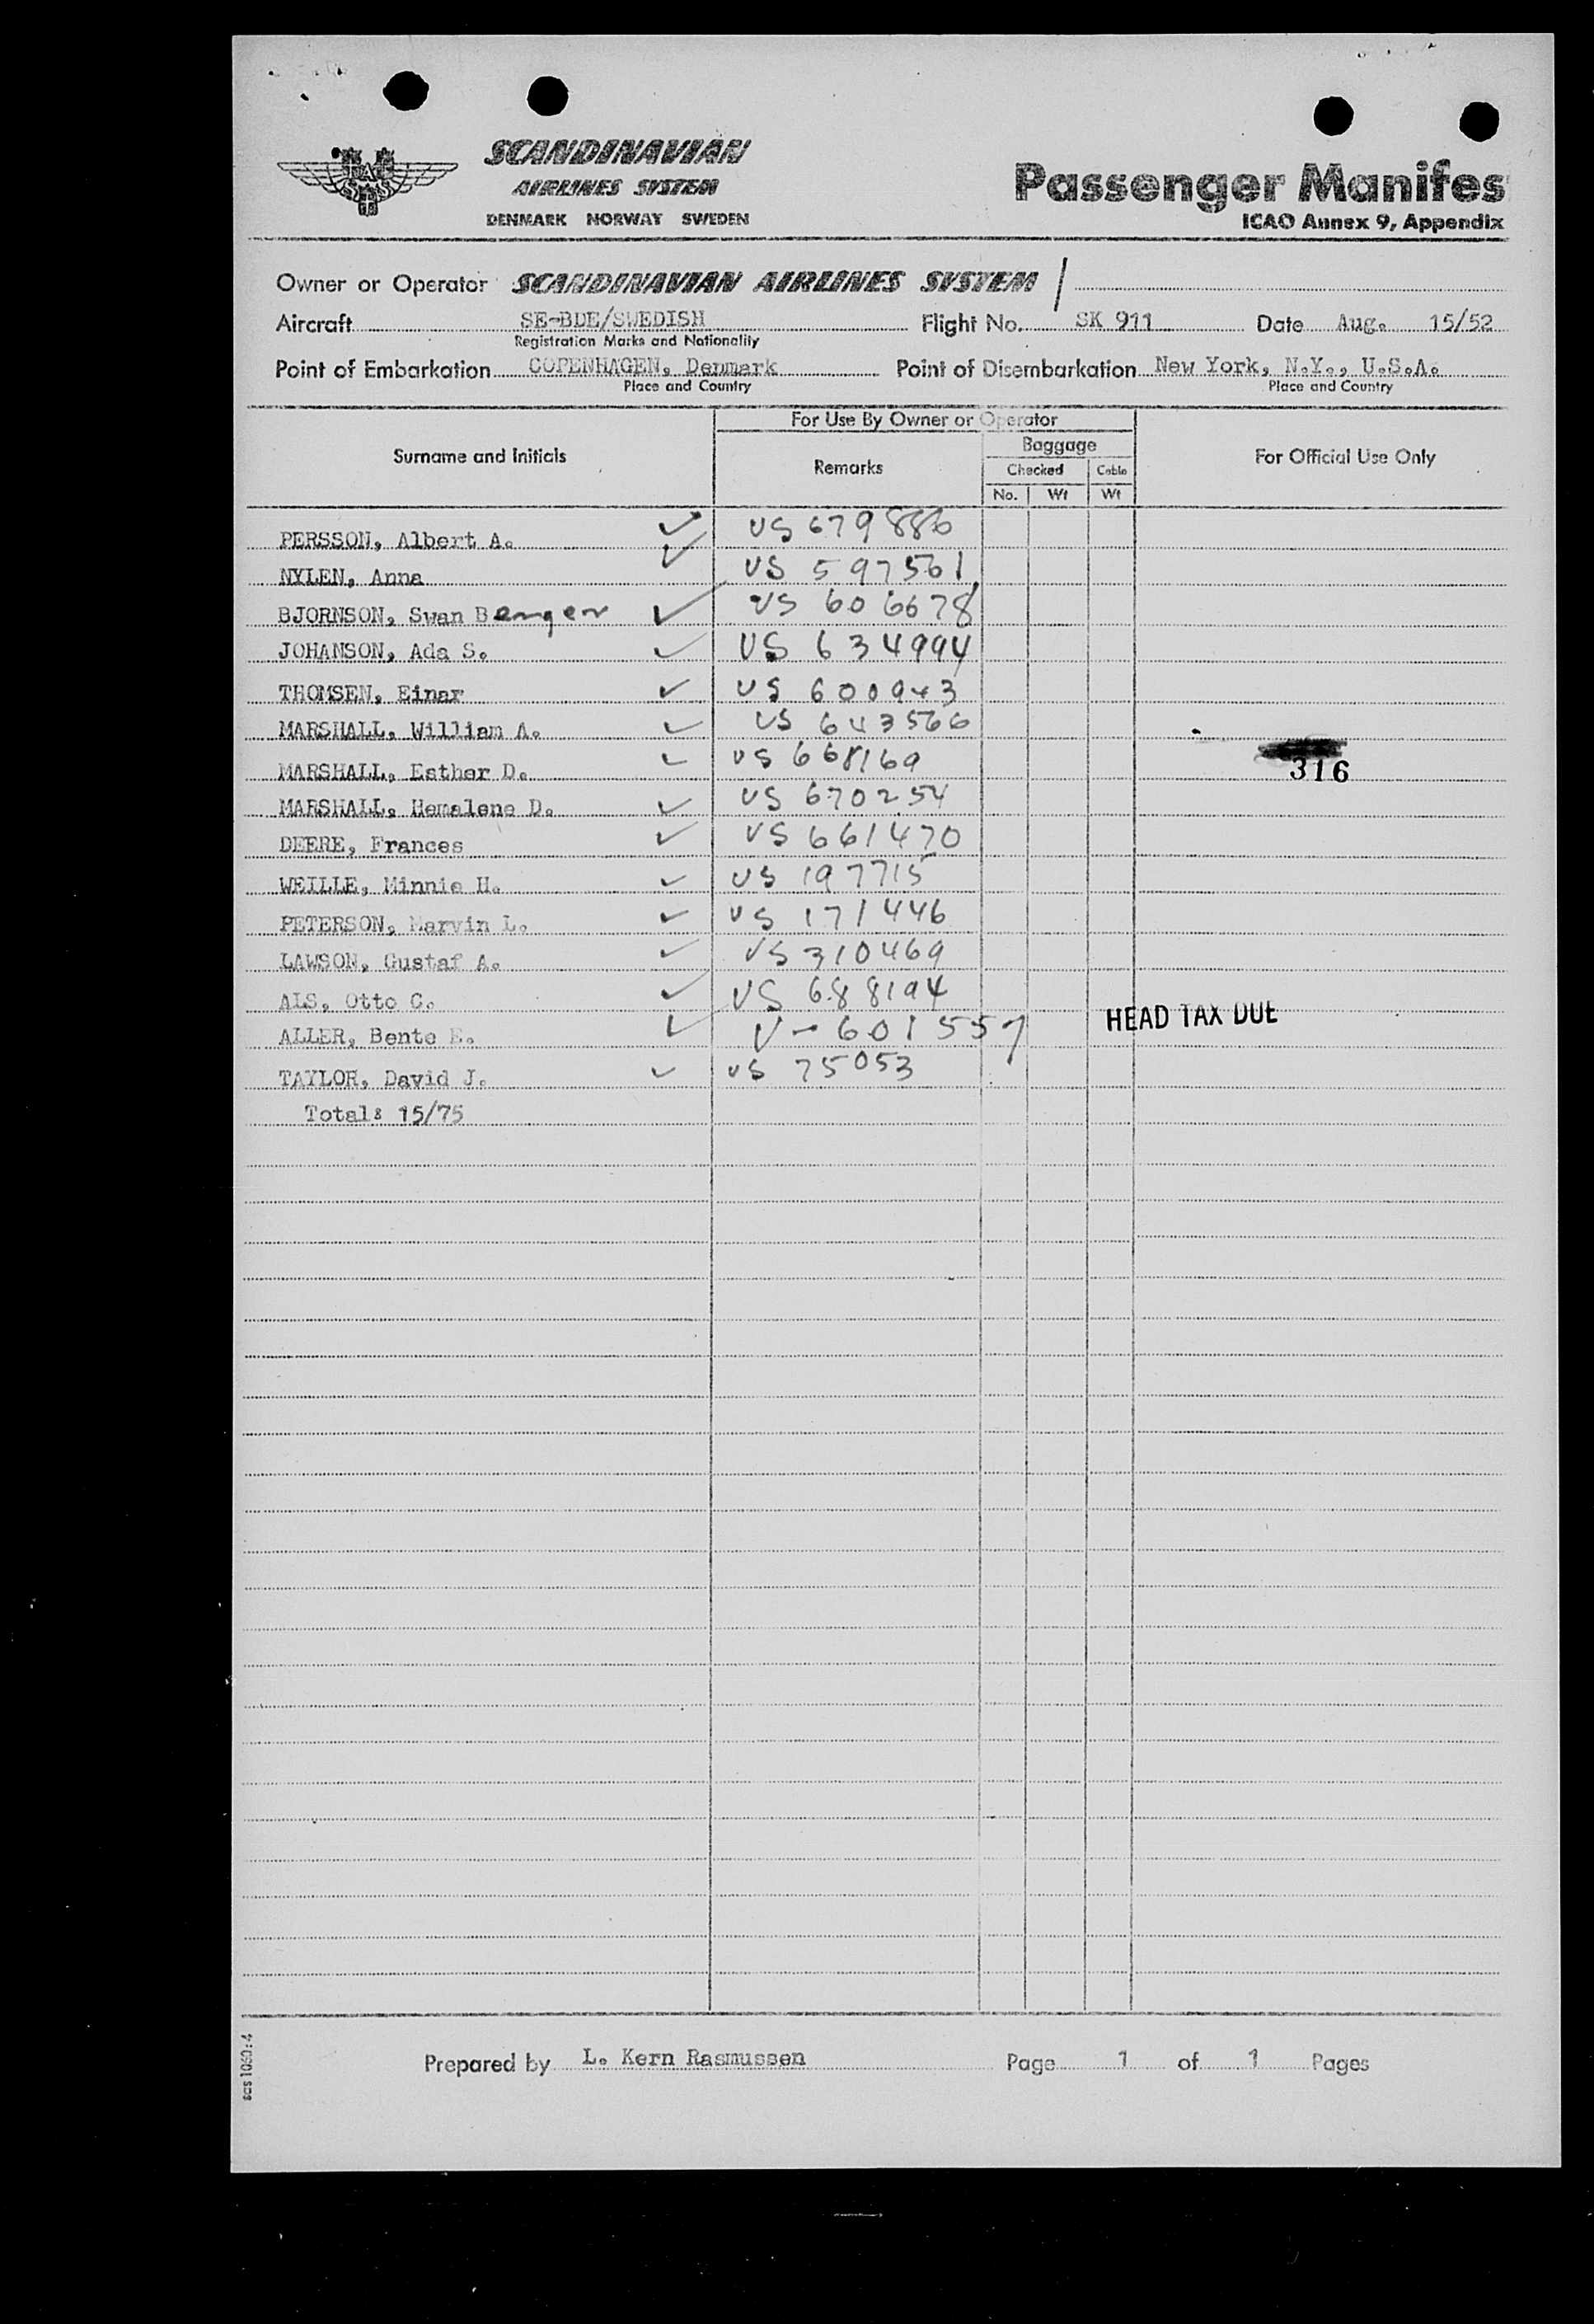 SCANDINAVIAN
AIRLINES SYSTEM
DENMARK NORWAY SWEDEN
Passenger Manifes
ICAO Annex 9, Appendix
Owner or Operator SCANDINAVIAN AIRLINES SYSTEM /
Aircraft SE-BDE/SWEDISH Flight No. SK 911 Date Aug. 15/52
Registration Marks and Nationality
Point of Embarkation COPENHAGEN, Denmark Point of Disembarkation New York, N.Y., U.S.A.
Place and Country Place and Country
For Use By Owner or Operator
Surname and Initials Remarks Baggage For Official Use Only
Checked Cabin
No. Wt Wt
PERSSON, Albert A. ✓ US 679886
NYLEN, Anna ✓ US 597561
BJORNSON, Swan Benger ✓ US 606678
JOHANSON, Ada S. ✓ US 634994
THOMSEN, Einar ✓ US 600943
MARSHALL, William A. ✓ US 643566
MARSHALL, Esther D. ✓ US 668169 316
MARSHALL, Hemalene D. ✓ US 670254
DEERE, Frances ✓ US 661470
WEILLE, Minnie H. ✓ US 197715
PETERSON, Marvin L. ✓ US 171446
LAWSON, Gustaf A. ✓ US 310469
ALS, Otto C. ✓ US 688194
ALLER, Bente E. ✓ V-601557 HEAD TAX DUE
TAYLOR, David J. ✓ US 75053
Total: 15/75
Prepared by L. Kern Rasmussen Page 1 of 1 Pages
sas 1060:4